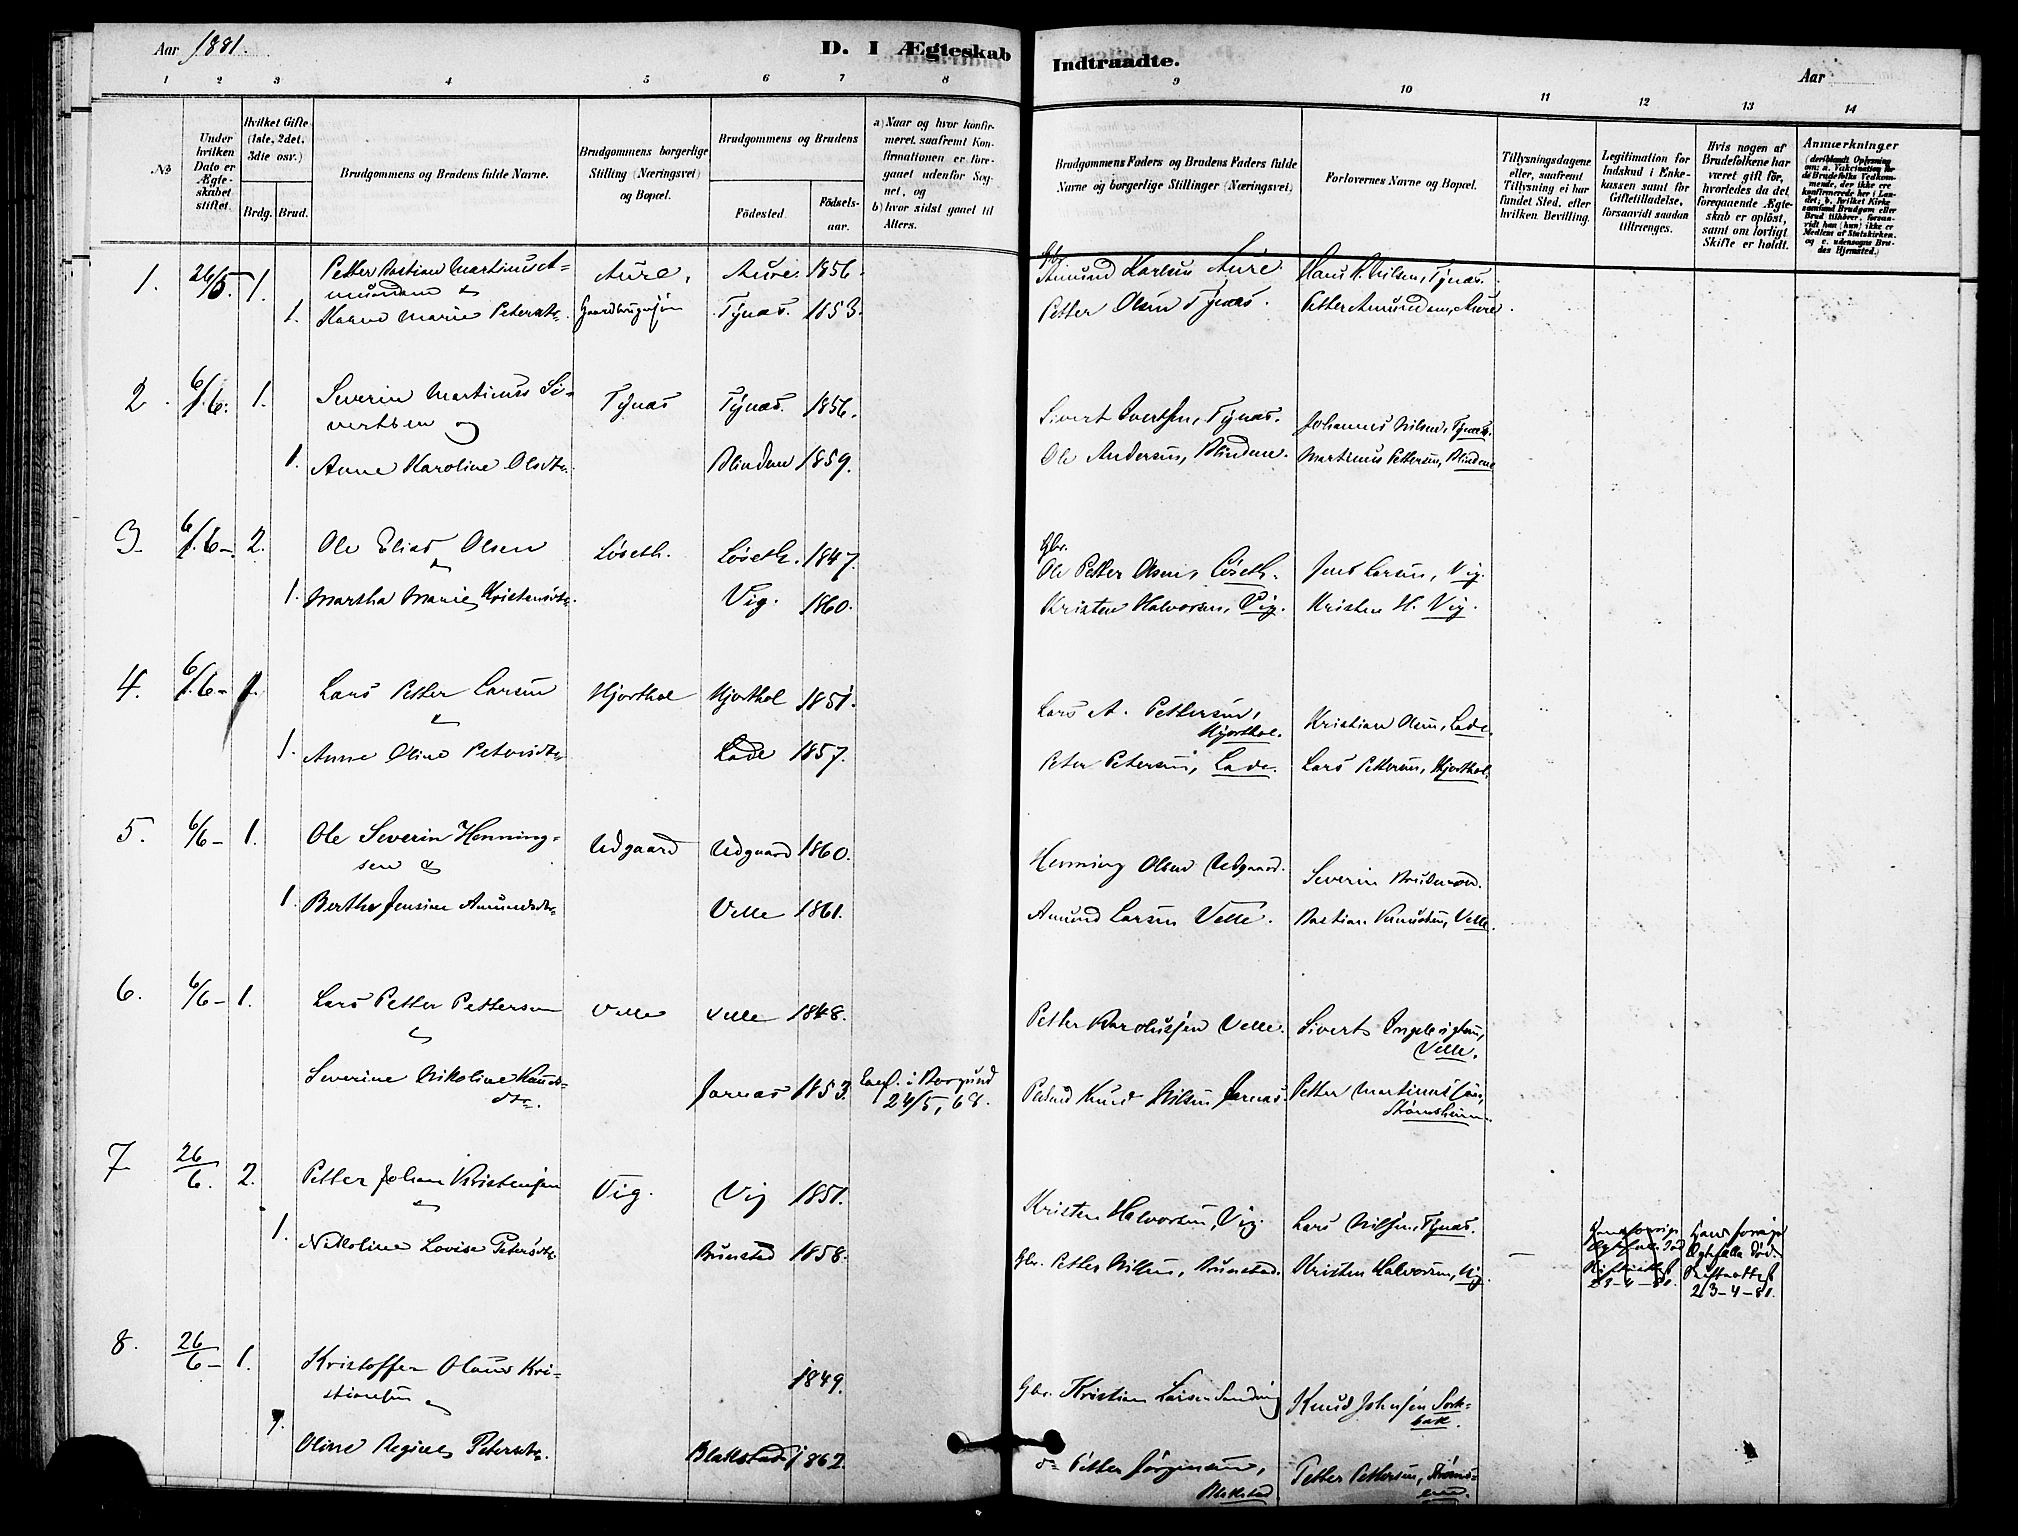 Aar 1881.
D. I Ægteskab Indtraadte.
Aar
1 2 3 4 5 6 7 8 9 10 11 12 13 14
No
Under hvilken Dato er Ægteskabet stiftet.
Hvilket Gifte (1ste, 2det, 3die osv.)
Brdg. Brud.
Brudgommens og Brudens fulde Navne.
Brudgommens borgerlige Stilling (Næringsvei) og Bopæl.
Brudgommens og Brudens
Fødested. Fødselsaar.
a) Naar og hvor konfirmeret, saafremt Konfirmationen er foregaaet udenfor Sognet, og
b) hvor sidst gaaet til Alters.
Brudgommens Faders og Brudens Faders fulde Navne og borgerlige Stillinger (Næringsvei)
Forlovernes Navne og Bopæl.
Tillysningsdagene eller, saafremt Tillysning ei har fundet Sted, efter hvilken Bevilling.
Legitimation for Indskud i Enkekassen samt for Giftetilladelse, forsaavidt saadan tiltrænges.
Hvis nogen af Brudefolkene har været gift før, hvorledes da det foregaaende Ægteskab er opløst, samt om lovligt Skifte er holdt.
Anmærkninger
1. 26/5 1. Petter Bastian Martinus A- Aure, Aure. 1856. Gbr. Amund Karlsen Aure. Hans P. Nilsen, Tynæs.
mundsen &
1. Karen Marie Petersdtr. Gaardbrugersøn Tynæs. 1853. Petter Olsen Tynæs. Petter Amundsen, Aure.
2. 6/6. 1. Severin Martinus Si- Tynæs Tynæs. 1856. Sivert Ivertsen, Tynæs. Johannes Nilsen, Tynæs.
vertsen og
1. Anne Karoline Olsdtr. Blindem 1859. Ole Andersen, Blindem. Martinus Pettersen, Blindem
3. 6/6-. 2. Ole Elias Olsen Løseth. Løseth. 1847. Gbr. Ole Petter Olsen, Løseth. Jens Larsen, Vig.
&
1. Martha Marie Kristensdtr. Vig. 1860. Kristen Halvorsen, Vig. Kristen H. Vig.
4. 6/6- 1. Lars Petter Larsen Hjorthol Hjorthol 1851. Lars A. Pettersen, Hjorthol. Kristian Olsen, Lade.
&
1. Anne Oline Petersdtr. Lade 1857. Peter Petersen, Lade. Lars Pettersen, Hjorthol.
5. 6/6- 1. Ole Severin Henning- Udgaard Udgaard 1860. Henning Olsen Udgaard. Severin
sen &
1. Berthe Jensine Amundsdtr. Velle 1861. Amund Larsen Velle. Bastian Knudsen, Velle.
6. 6/6- 1. Lars Petter Pettersen Velle Velle 1848. Petter Karolussen Velle. Sivert Velle.
&
Severine Nikoline Knuds- Jarnæs 1853. Conf. i Borgund Knud Nilsen Jarnæs. Petter Martinussen,
dtr. 24/5, 68. Strømsheim.
7 26/6. 2. Petter Johan Kristensen Vig. Vig 1851. Kristen Halvorsen, Vig. Lars Nilsen, Tynæs.
&
1. Nikoline Lovise Petersdtr. Brunstad 1858. Gbr. Petter Nilsen, Brunstad. Kristen Halvorsen, Vig. —
Hans forrige Ægtefælle død. Skifteattest 23-4-81.
8. 26/6- 1. Kristoffer Olaus Kri- 1849. Gbr. Kristian Larsen Knud Johnsen
stiansen &
1. Oline Regine Petersdtr. Blakstad 1862. do Petter Jørgensen, Petter Pettersen,
Blakstad